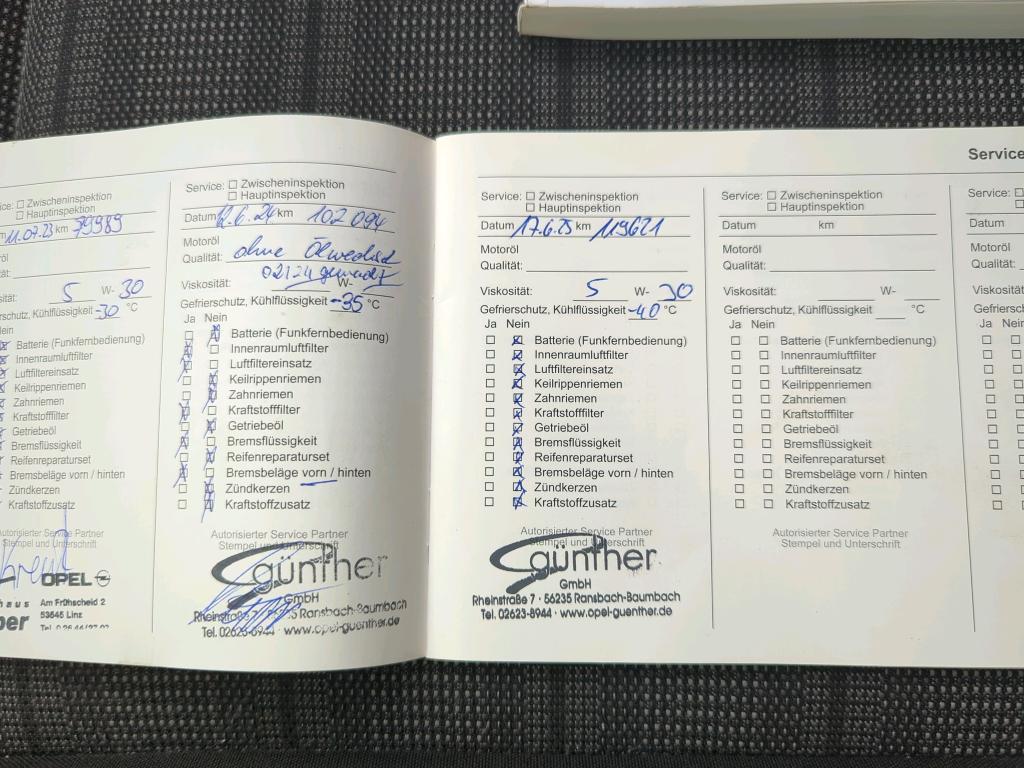 Service
ce: ☐ Zwischeninspektion
☐ Hauptinspektion
m 11.07.23 km 79989
töl
tät:
osität: 5 W- 30
rschutz, Kühlflüssigkeit -30 °C
Nein
Batterie (Funkfernbedienung)
Innenraumluftfilter
Luftfiltereinsatz
Keilrippenriemen
Zahnriemen
Kraftstofffilter
Getriebeöl
Bremsflüssigkeit
Reifenreparaturset
Bremsbeläge vorn / hinten
Zündkerzen
Kraftstoffzusatz
Autorisierter Service Partner
Stempel und Unterschrift
OPEL
haus
ber
Am Frühscheid 2
53545 Linz
Service: ☐ Zwischeninspektion
☐ Hauptinspektion
Datum 12.6.24 km 102 094
Motoröl
Qualität: ohne Ölwechsel
02/24 gemacht
Viskosität: W-
Gefrierschutz, Kühlflüssigkeit -35 °C
Ja Nein
Batterie (Funkfernbedienung)
Innenraumluftfilter
Luftfiltereinsatz
Keilrippenriemen
Zahnriemen
Kraftstofffilter
Getriebeöl
Bremsflüssigkeit
Reifenreparaturset
Bremsbeläge vorn / hinten
Zündkerzen
Kraftstoffzusatz
Autorisierter Service Partner
Stempel und Unterschrift
günther
GmbH
Rheinstraße 7 · 56235 Ransbach-Baumbach
Tel. 02623-8944 · www.opel-guenther.de
Service: ☐ Zwischeninspektion
☐ Hauptinspektion
Datum 17.6.25 km 119621
Motoröl
Qualität:
Viskosität: 5 W- 30
Gefrierschutz, Kühlflüssigkeit -40 °C
Ja Nein
Batterie (Funkfernbedienung)
Innenraumluftfilter
Luftfiltereinsatz
Keilrippenriemen
Zahnriemen
Kraftstofffilter
Getriebeöl
Bremsflüssigkeit
Reifenreparaturset
Bremsbeläge vorn / hinten
Zündkerzen
Kraftstoffzusatz
Autorisierter Service Partner
Stempel und Unterschrift
günther
GmbH
Rheinstraße 7 · 56235 Ransbach-Baumbach
Tel. 02623-8944 · www.opel-guenther.de
Service: ☐ Zwischeninspektion
☐ Hauptinspektion
Datum km
Motoröl
Qualität:
Viskosität: W-
Gefrierschutz, Kühlflüssigkeit °C
Ja Nein
Batterie (Funkfernbedienung)
Innenraumluftfilter
Luftfiltereinsatz
Keilrippenriemen
Zahnriemen
Kraftstofffilter
Getriebeöl
Bremsflüssigkeit
Reifenreparaturset
Bremsbeläge vorn / hinten
Zündkerzen
Kraftstoffzusatz
Autorisierter Service Partner
Stempel und Unterschrift
Service: ☐
Datum
Motoröl
Qualität:
Viskosität:
Gefriersc
Ja Nein